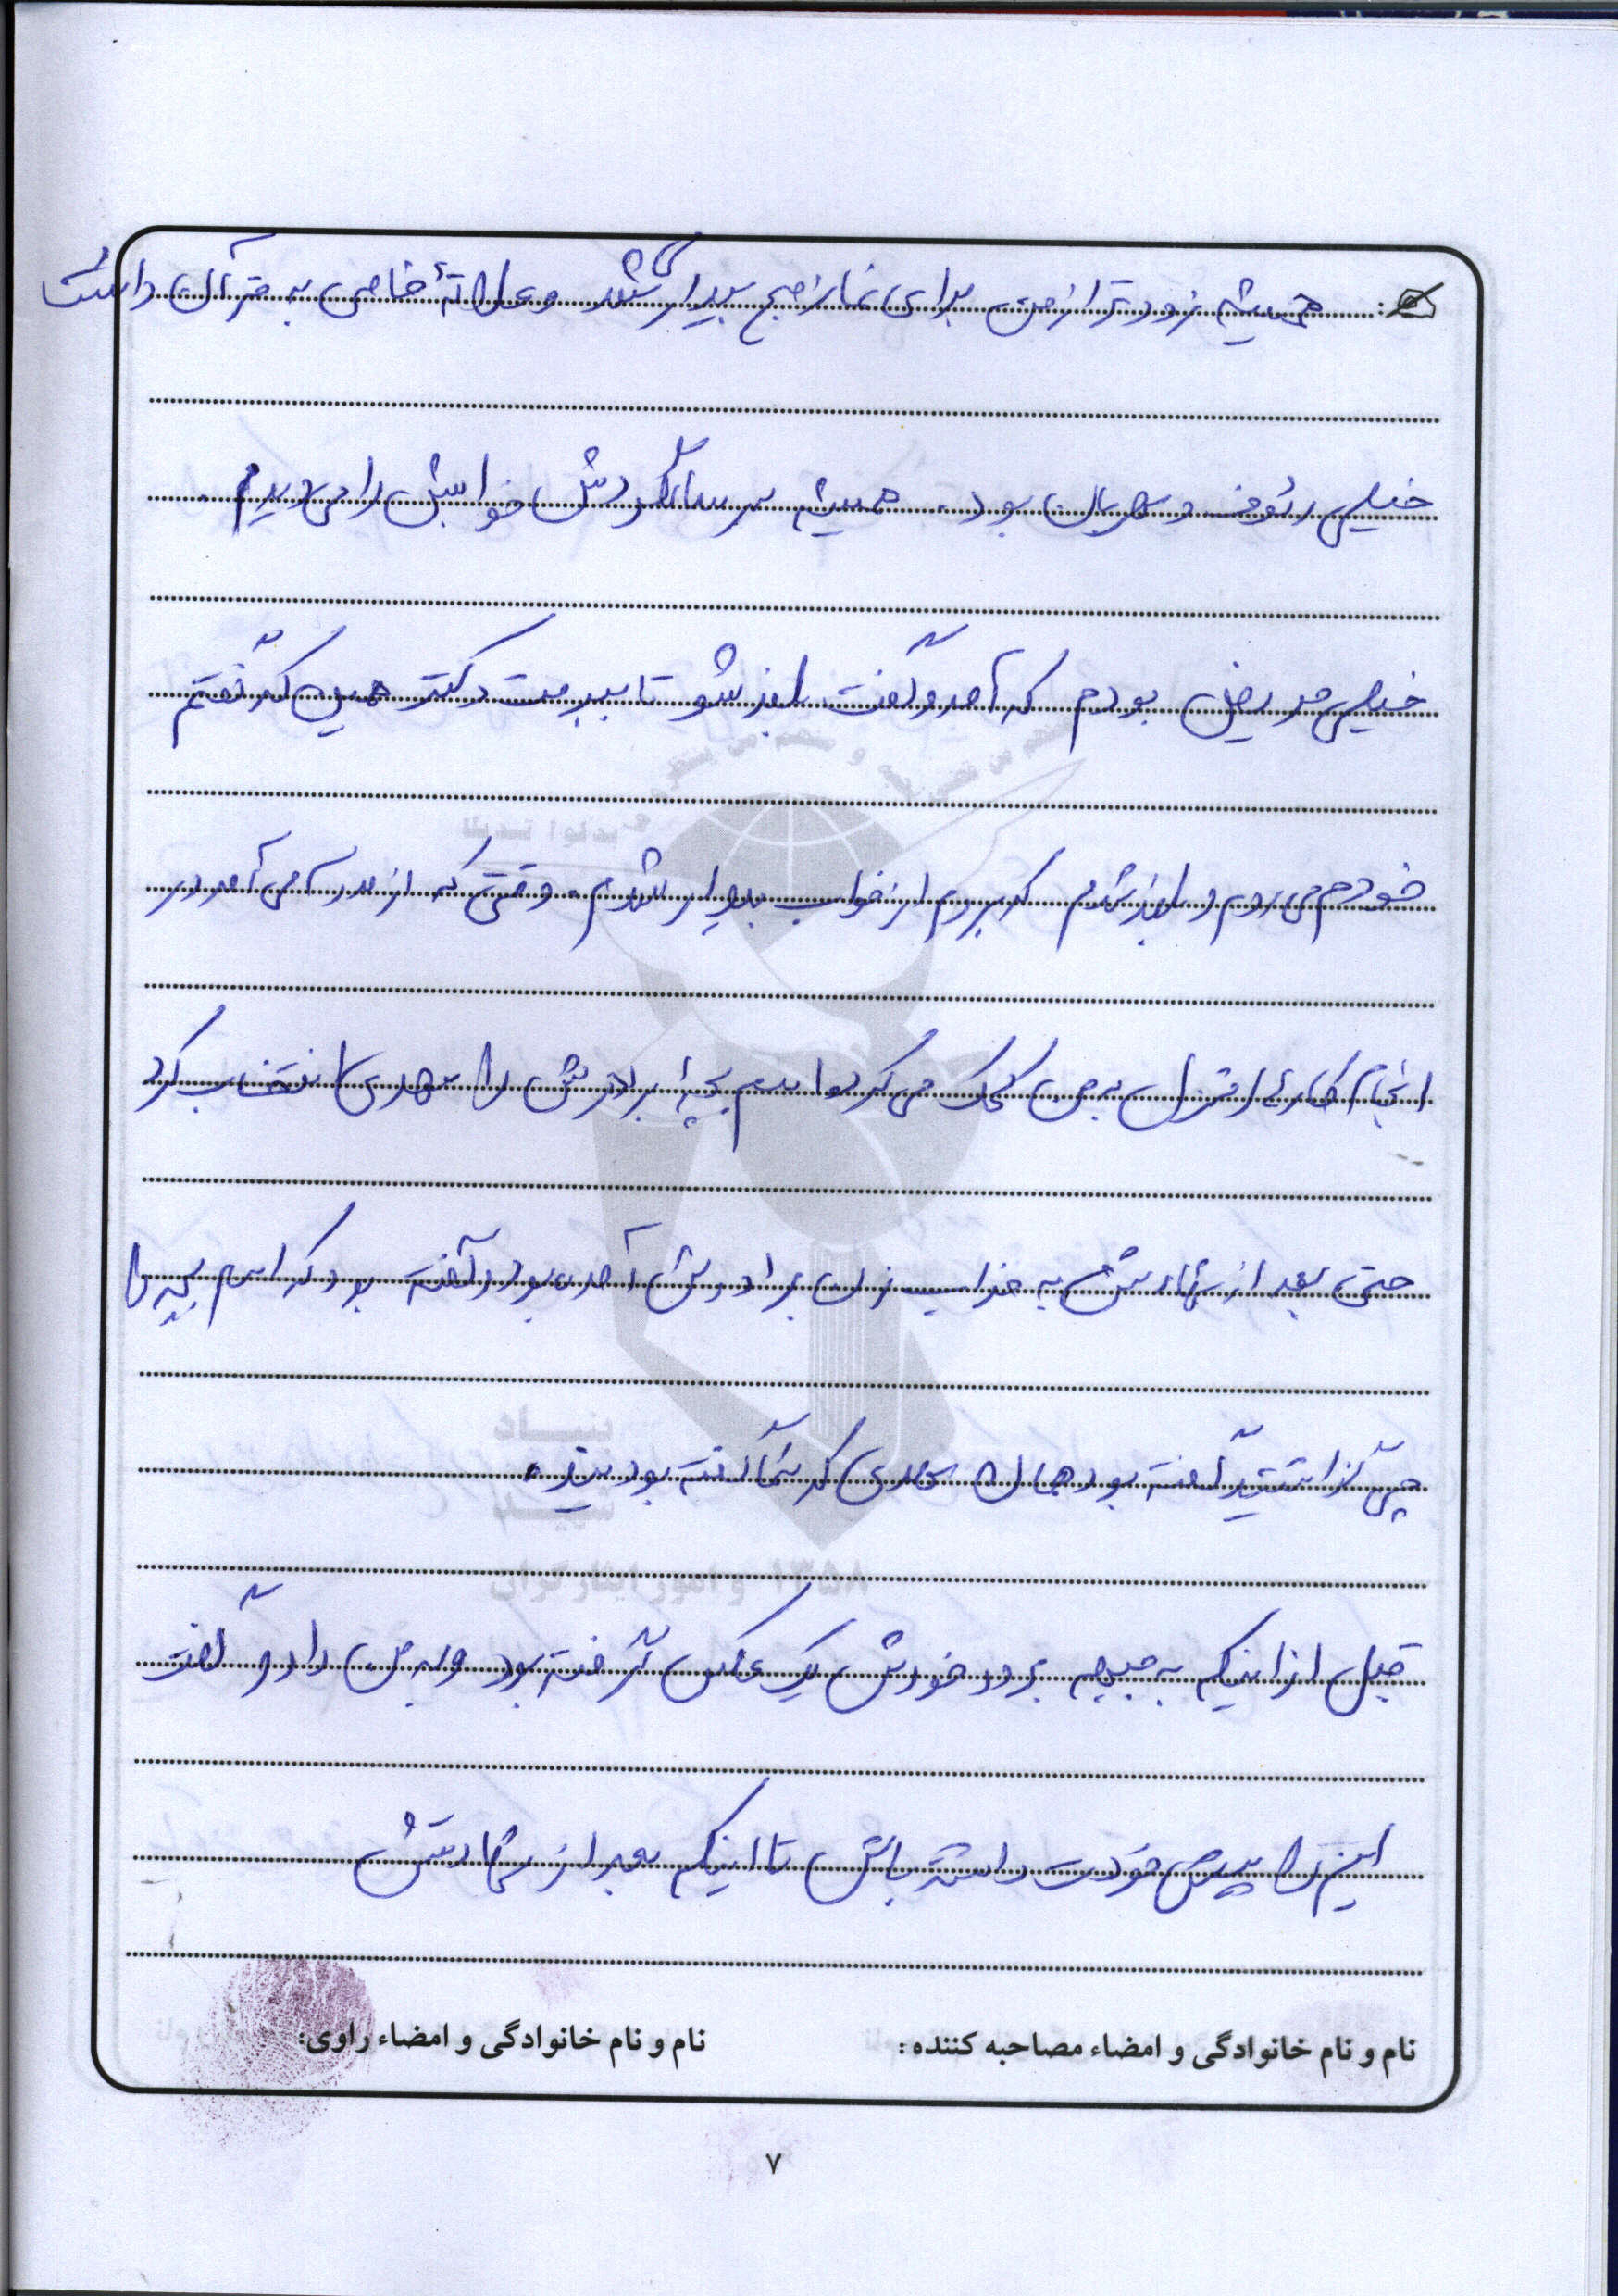 همیشه زودتر از من برای نماز صبح بیدار می شد و علاقهٔ خاصی به قرآن داشت
خیلی رئوف و مهربان بود. همیشه سر سالگردش خوابش را می دیدم.
خیلی مریض بودم که آمد و گفت بلند شو تا ببرمت دکتر همین که گفتم
خودم می روم و بلند شدم که بروم از خواب بیدار شدم. وقتی که از مدرسه می آمد در
انجام کارهای منزل به من کمک می کرد و اسم بچهٔ برادرش را مهدی انتخاب کرد
حتی بعد از شهادتش به خواب زن برادرش آمده بود و گفته بود که اسم بچه را
چی گذاشتید گفته بود همان مهدی که شما گفته بودید.
قبل از اینکه به جبهه برود خودش یک عکس گرفته بود و به من داد و گفت
این را پیش خودت داشته باش تا اینکه بعد از شهادتش
نام و نام خانوادگی و امضاء مصاحبه کننده: نام و نام خانوادگی و امضاء راوی:
۷